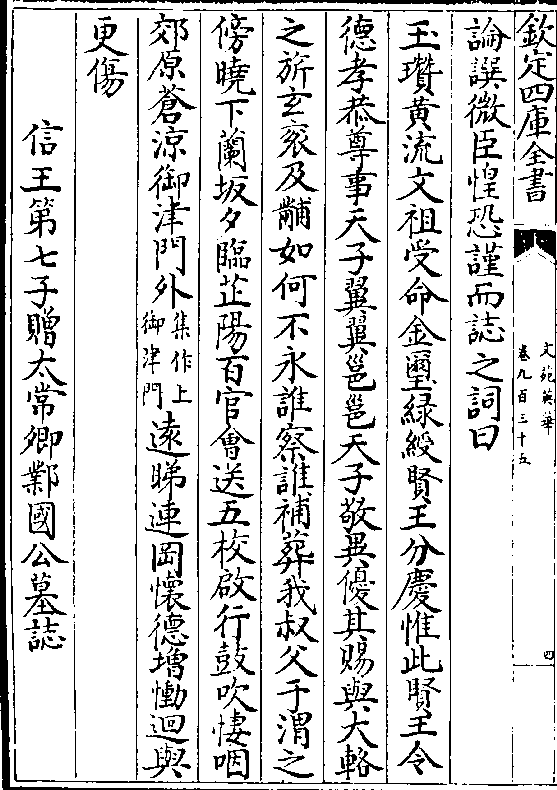 欽定四庫全書
文苑英華
卷九百三十五
四
論譔微臣惶恐謹而誌之詞曰
玉瓚黃流文祖受命金璽緑綬賢王分慶惟此賢王令
德孝恭尊事天子翼翼邕邕天子敬異優其賜與大輅
之旂玄衮及黼如何不永誰察誰補葬我叔父于渭之
傍曉下蘭坂夕臨芷陽百官會送五校啟行鼓吹悽咽
郊原蒼涼御津門外集作上御津門遠睇連岡懷德增慟迴輿
更傷
信王第七子贈太常卿鄴國公墓誌